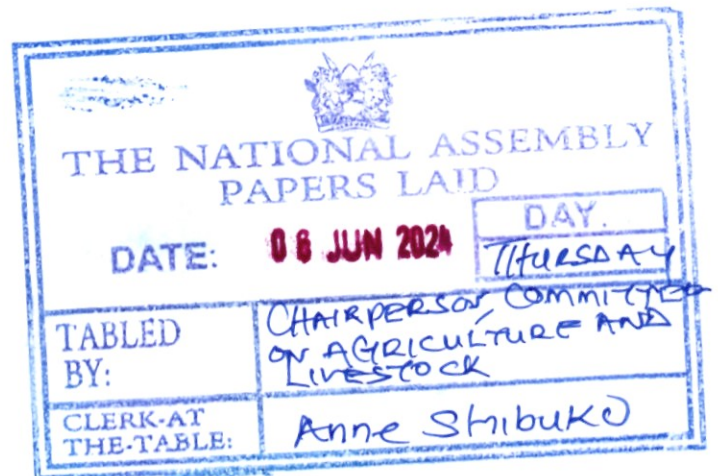 THE NATIONAL ASSEMBLY
PAPERS LAID
DATE: 06 JUN 2024
DAY.
THURSDAY
TABLED
BY:
CHAIRPERSON, COMMITTEE
ON AGRICULTURE AND
LIVESTOCK
CLERK-AT
THE-TABLE:
Anne Shibuko